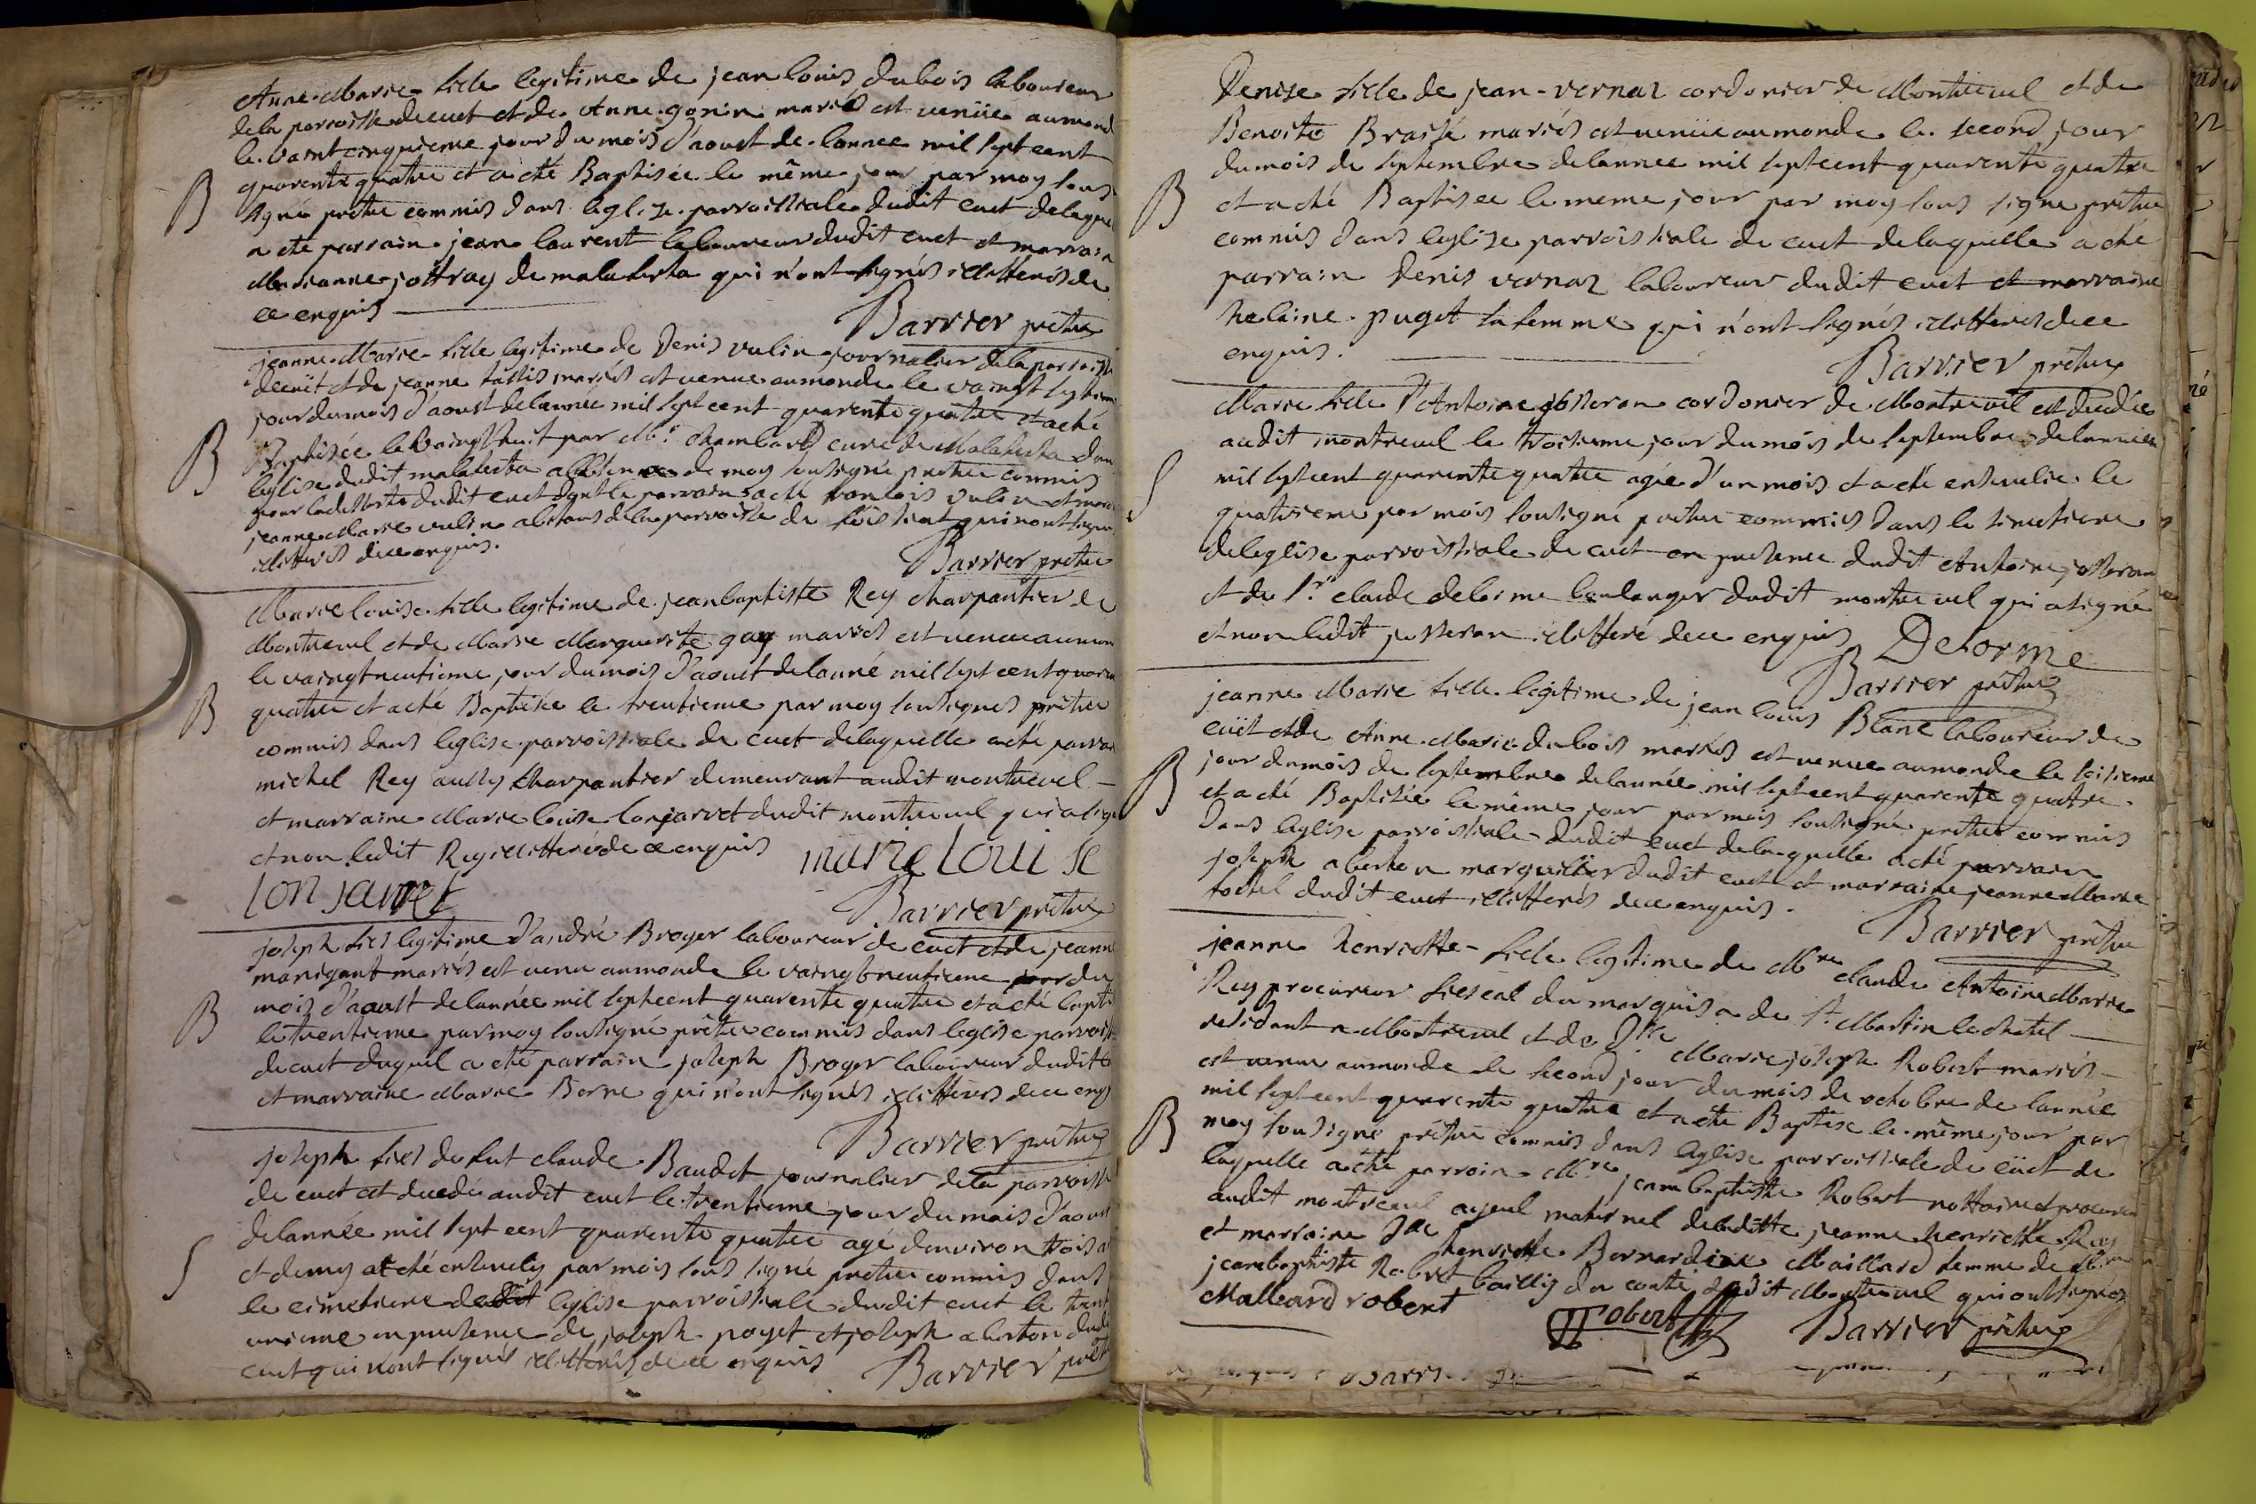 Anne-Marie fille legitime de jean louis dubois laboureur
de la parroisse de cuet et de Anne gonin mariés est venüe au mond
le vaint cinquieme jour du mois d'aoust de lannee mil sept cent
B quarente quatre et a eté Baptisée le même jour par moy sous
signé prêtre commis dans leglize parroissiale dudit cuet de laque
a eté parrain jean laurent laboureur dudit cuet et marrain
Marianne joffray de malaferta qui n'ont signés illitterés de
ce enquis
Barrier prêtre
jeanne-Marie fille legitime de Denis vulin journalier de la parroiss
de cuët et de jeanne mariés est venue au monde le vaingt septiem
jour du mois d'aoust de lannee mil sept cent quarente quatre et a eté
B Baptisée le vaingt huit par Mr. chambard curé de Malaferta dan
leglise dudit malaferta de moy soussigné prêtre commis
pour la desserte dudit cuet dont le parrain a eté francois vulin et marr
jeanne Marie vulin abitans de la parroisse de qui n'ont signe
illitterés de ce enquis.
Barrier prêtre
Marie louise fille legitime de jean baptiste Rey charpantier de
Montrevel et de Marie Marguerite gay mariés est venue au mon
le vaingt neufieme jour du mois d'aoust de lanné mil sept cent quara
B quatre et a eté Baptisée le trentieme par moy soussignés prêtre
commis dans leglise parroissiale de cuet de laquelle a eté parrai
michel Rey aussy charpantier demeurant audit montrevel
et marraine Marie louise lonjarret dudit montrevel qui a signe
et non ledit Rey illitteré de ce enquis marie loui se
lon jarret
Barrier prêtre
joseph fils legitime d'andré Broyer laboureur de cuet et de jeanne
manigant mariés est venu au monde le vaingt neufieme jour du
mois d'aoust de lannée mil sept cent quarente quatre et a eté bapti
B le trentieme par moy soussigné prêtre commis dans leglise parroiss
de cuet duquel a eté parrain joseph Broyer laboureur dudit
et marraine Marie Borne qui n'ont signés illitterés de ce enq
Barrier prêtre
joseph fils de fut claude Baudet journalier de la parroisse
de cuet est decedé audit cuet le trentieme jour du mois d'aoust
de lannée mil sept cent quarente quatre agé d'environ trois a
S et demy et a eté enterrely par mois sous signé prêtre commis dans
le cimetiere leglise parroissiale dudit cuet le trent
unieme en presence de joseph poyet et joseph aberton dud
cuet qui n'ont signés illitterés de ce enquis Barrier prêt
Denize fille de jean-vernaz cordonier de Montrevel et de
Benoite Brassé mariés est venüe au monde le second jour
du mois de septembre de lannee mil sept cent quarente quatre
B et a eté Baptisee le meme jour par moy sous signe prêtre
commis dans leglize parroissiale de cuet de laquelle a eté
parrain Denis vernaz laboureur dudit cuet et marraine
helaine puget sa femme qui n'ont signés illitterés de ce
enquis.
Barrier prêtre
Marie fille d'Antoine josseran cordonier de Montrevel est decedée
audit montrevel le troisieme jour du mois de septembre de lannee
S mil sept cent quarente quatre agée d'un mois et a eté entervelie le
quatrieme par mois soussigné prêtre commis dans le simetiere
de leglise parroissiale de cuet en presence dudit Antoine josseran
et de sr. claude delorme boulanger dudit montrevel qui a signé
et non ledit josseran illitteré de ce enquis Delorme
Barrier prêtre
jeanne Marie fille legitime de jean louis Blanc laboureur de
cuët et de Anne-Marie dubois mariés est venue au monde le
B jour du mois de septembre de lannée mil sept cent quarente quatre
et a eté Baptisée le même jour par mois soussigné prêtre commis
dans leglise parroissiale dudit cuet de laquelle a eté parrain
joseph aberton marguillier dudit cuet et marraine jeanne Marie
tostel dudit cuet illitterés de ce enquis.
Barrier prêtre
jeanne henriette fille legitime de Mre claude Antoine Marie
Rey procureur fiscal du marquisa de st. Martin le chatel
residant a Montrevel et de Dlle Marie joseph Robert mariés
est venue au monde le second jour du mois de octobre de lannée
B mil sept cent quarente quatre et a eté Baptisé le même jour par
moy soussigné prêtre commis dans leglise parroissiale de cüet de
laquelle a eté parrain Mre jean baptiste Robert nottaire et procureur
audit montrevel ayeul maternel de laditte jeanne henriette Rey
et marraine Dlle henriette Bernardine Maillard femme de Mre
jean baptiste Robert baillij du conté dudit Montrevel qui ont signés
Malliard robert Robert Barrier prêtre